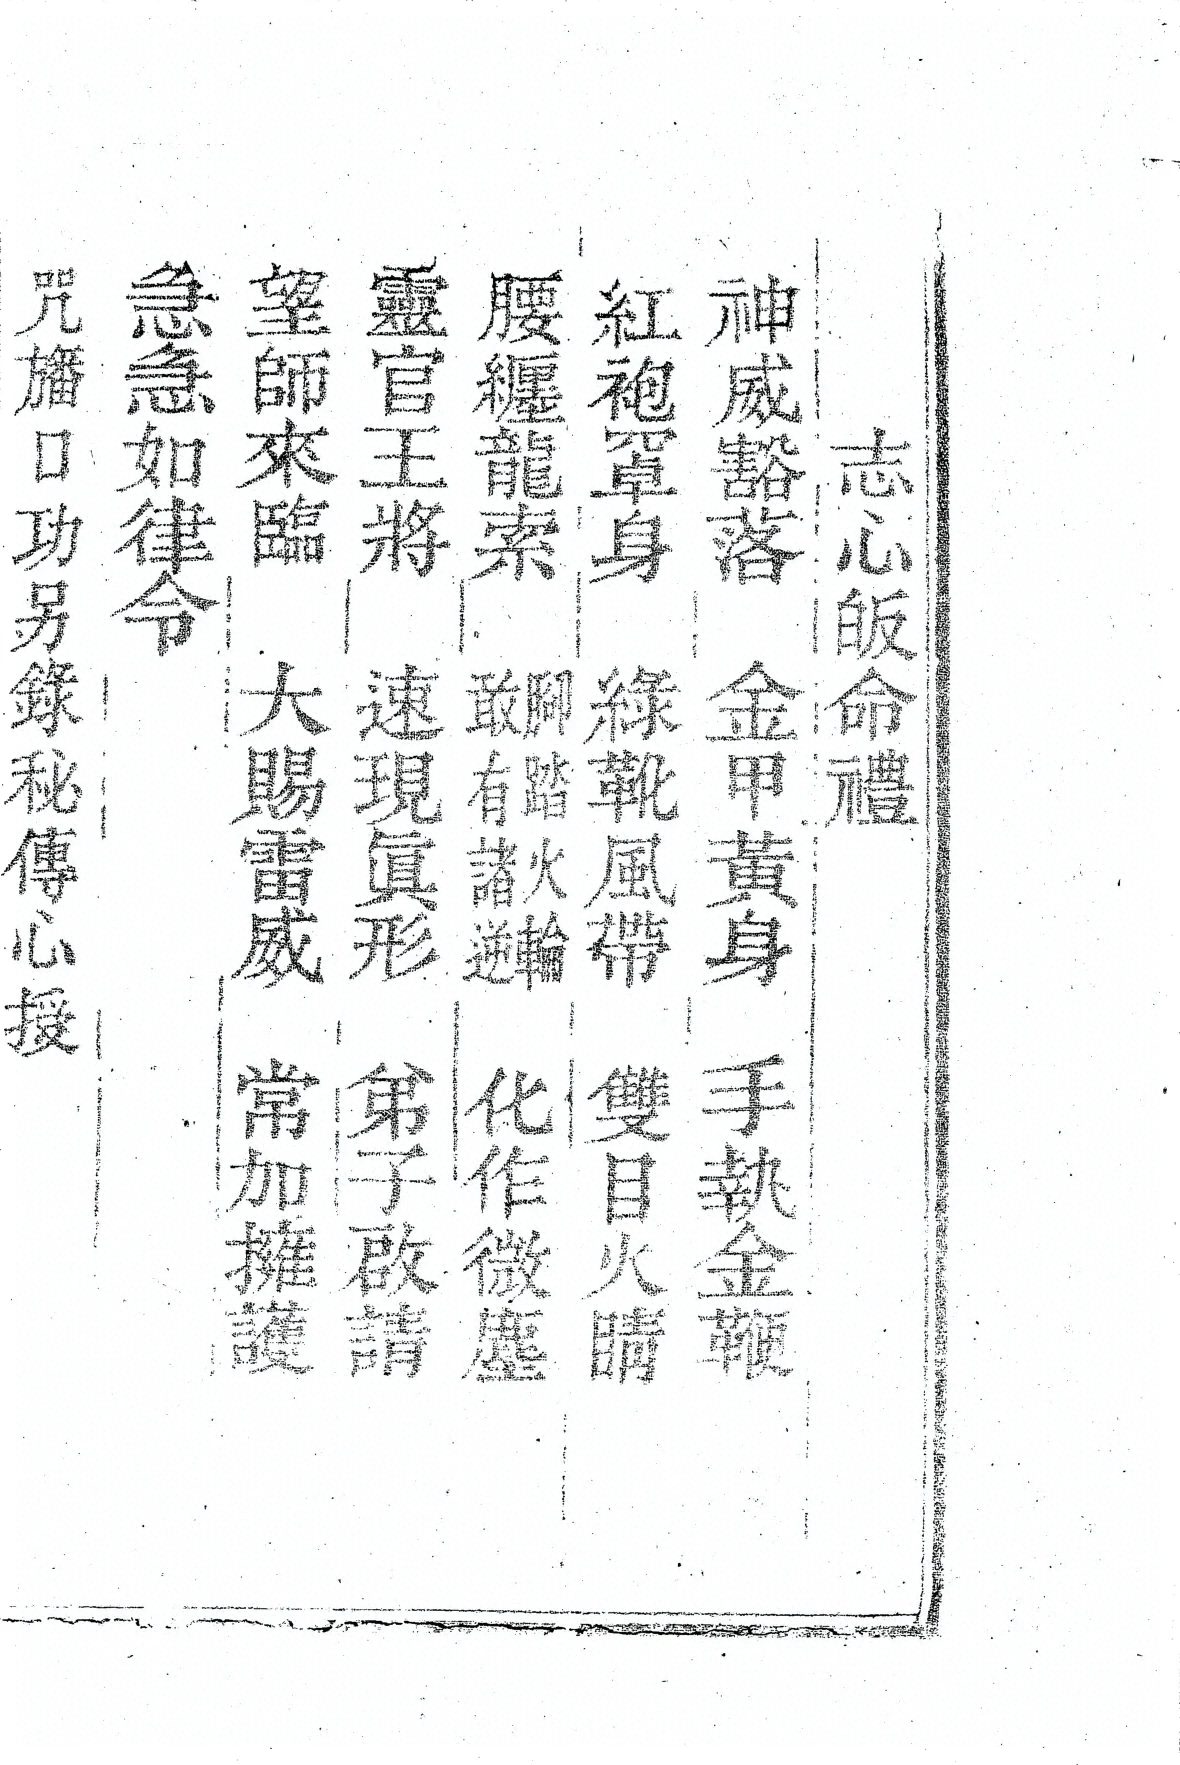 志心皈命禮
神威豁落　金甲黃身　手執金鞭
紅袍罩身　綠靴風帶　雙目火睛
腰纏龍索　脚踏火輪　敢有諸逆　化作微塵
靈官王將　速現眞形　弟子啟請
望師來臨　大賜雷威　常加擁護
急急如律令
咒旛口功另錄秘傳心授